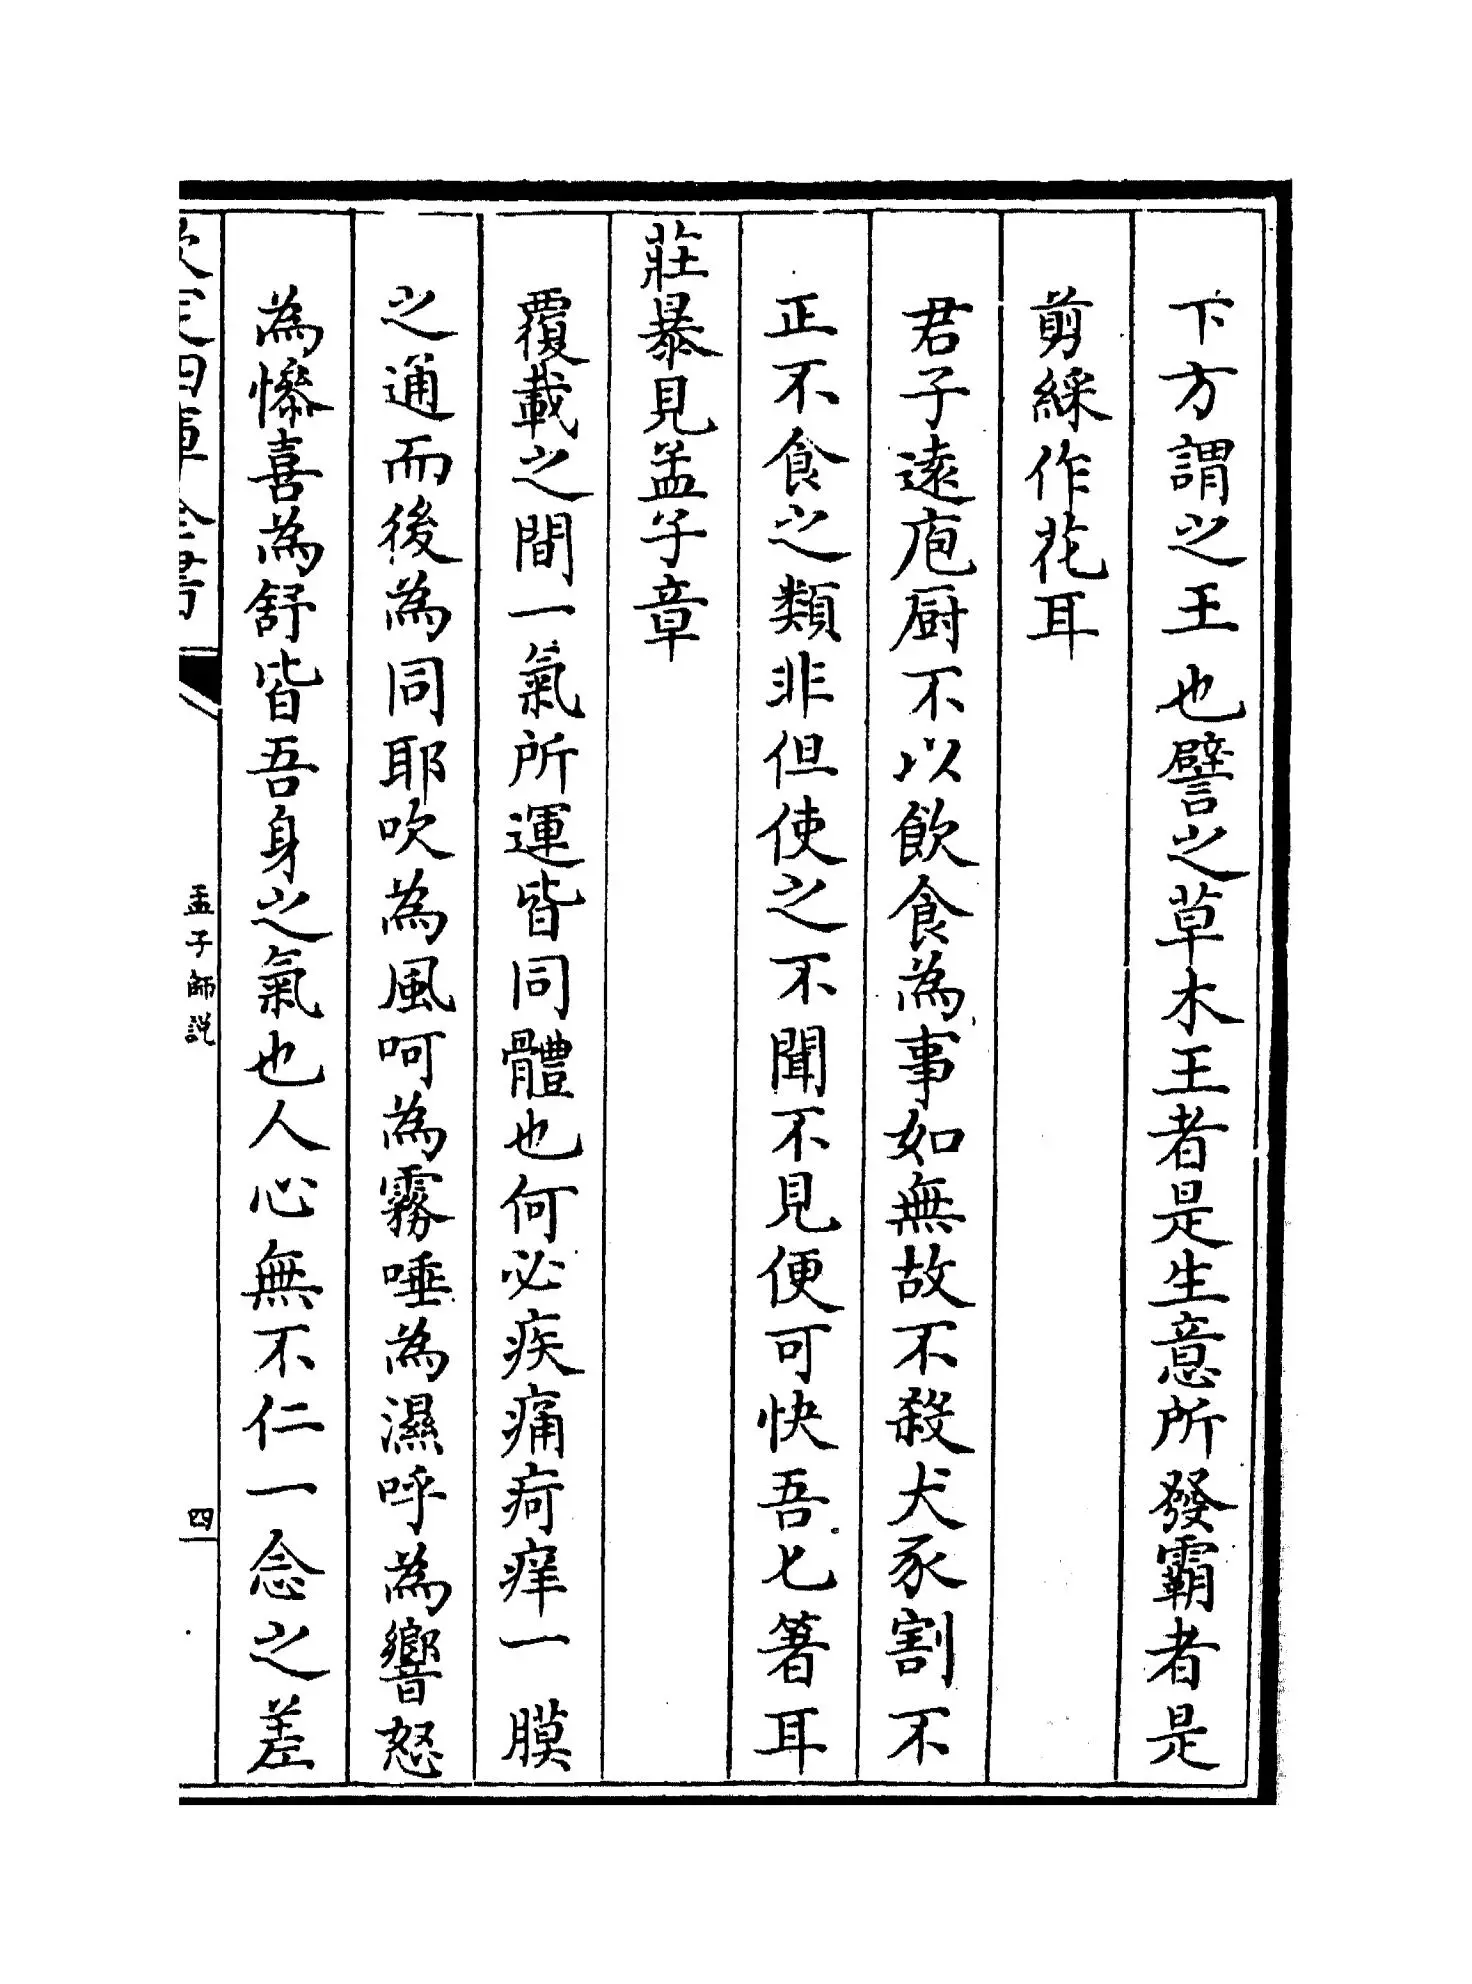 下方謂之王也譬之草木王者是生意所發霸者是
剪綵作花耳
君子遠庖厨不以飲食為事如無故不殺犬豕割不
正不食之類非但使之不聞不見便可快吾匕箸耳
莊暴見孟子章
覆載之間一氣所運皆同體也何必疾痛疴癢一膜
之通而後為同耶吹為風呵為霧唾為濕呼為響怒
為慘喜為舒皆吾身之氣也人心無不仁一念之差
欽定四庫全書
孟子師説
四